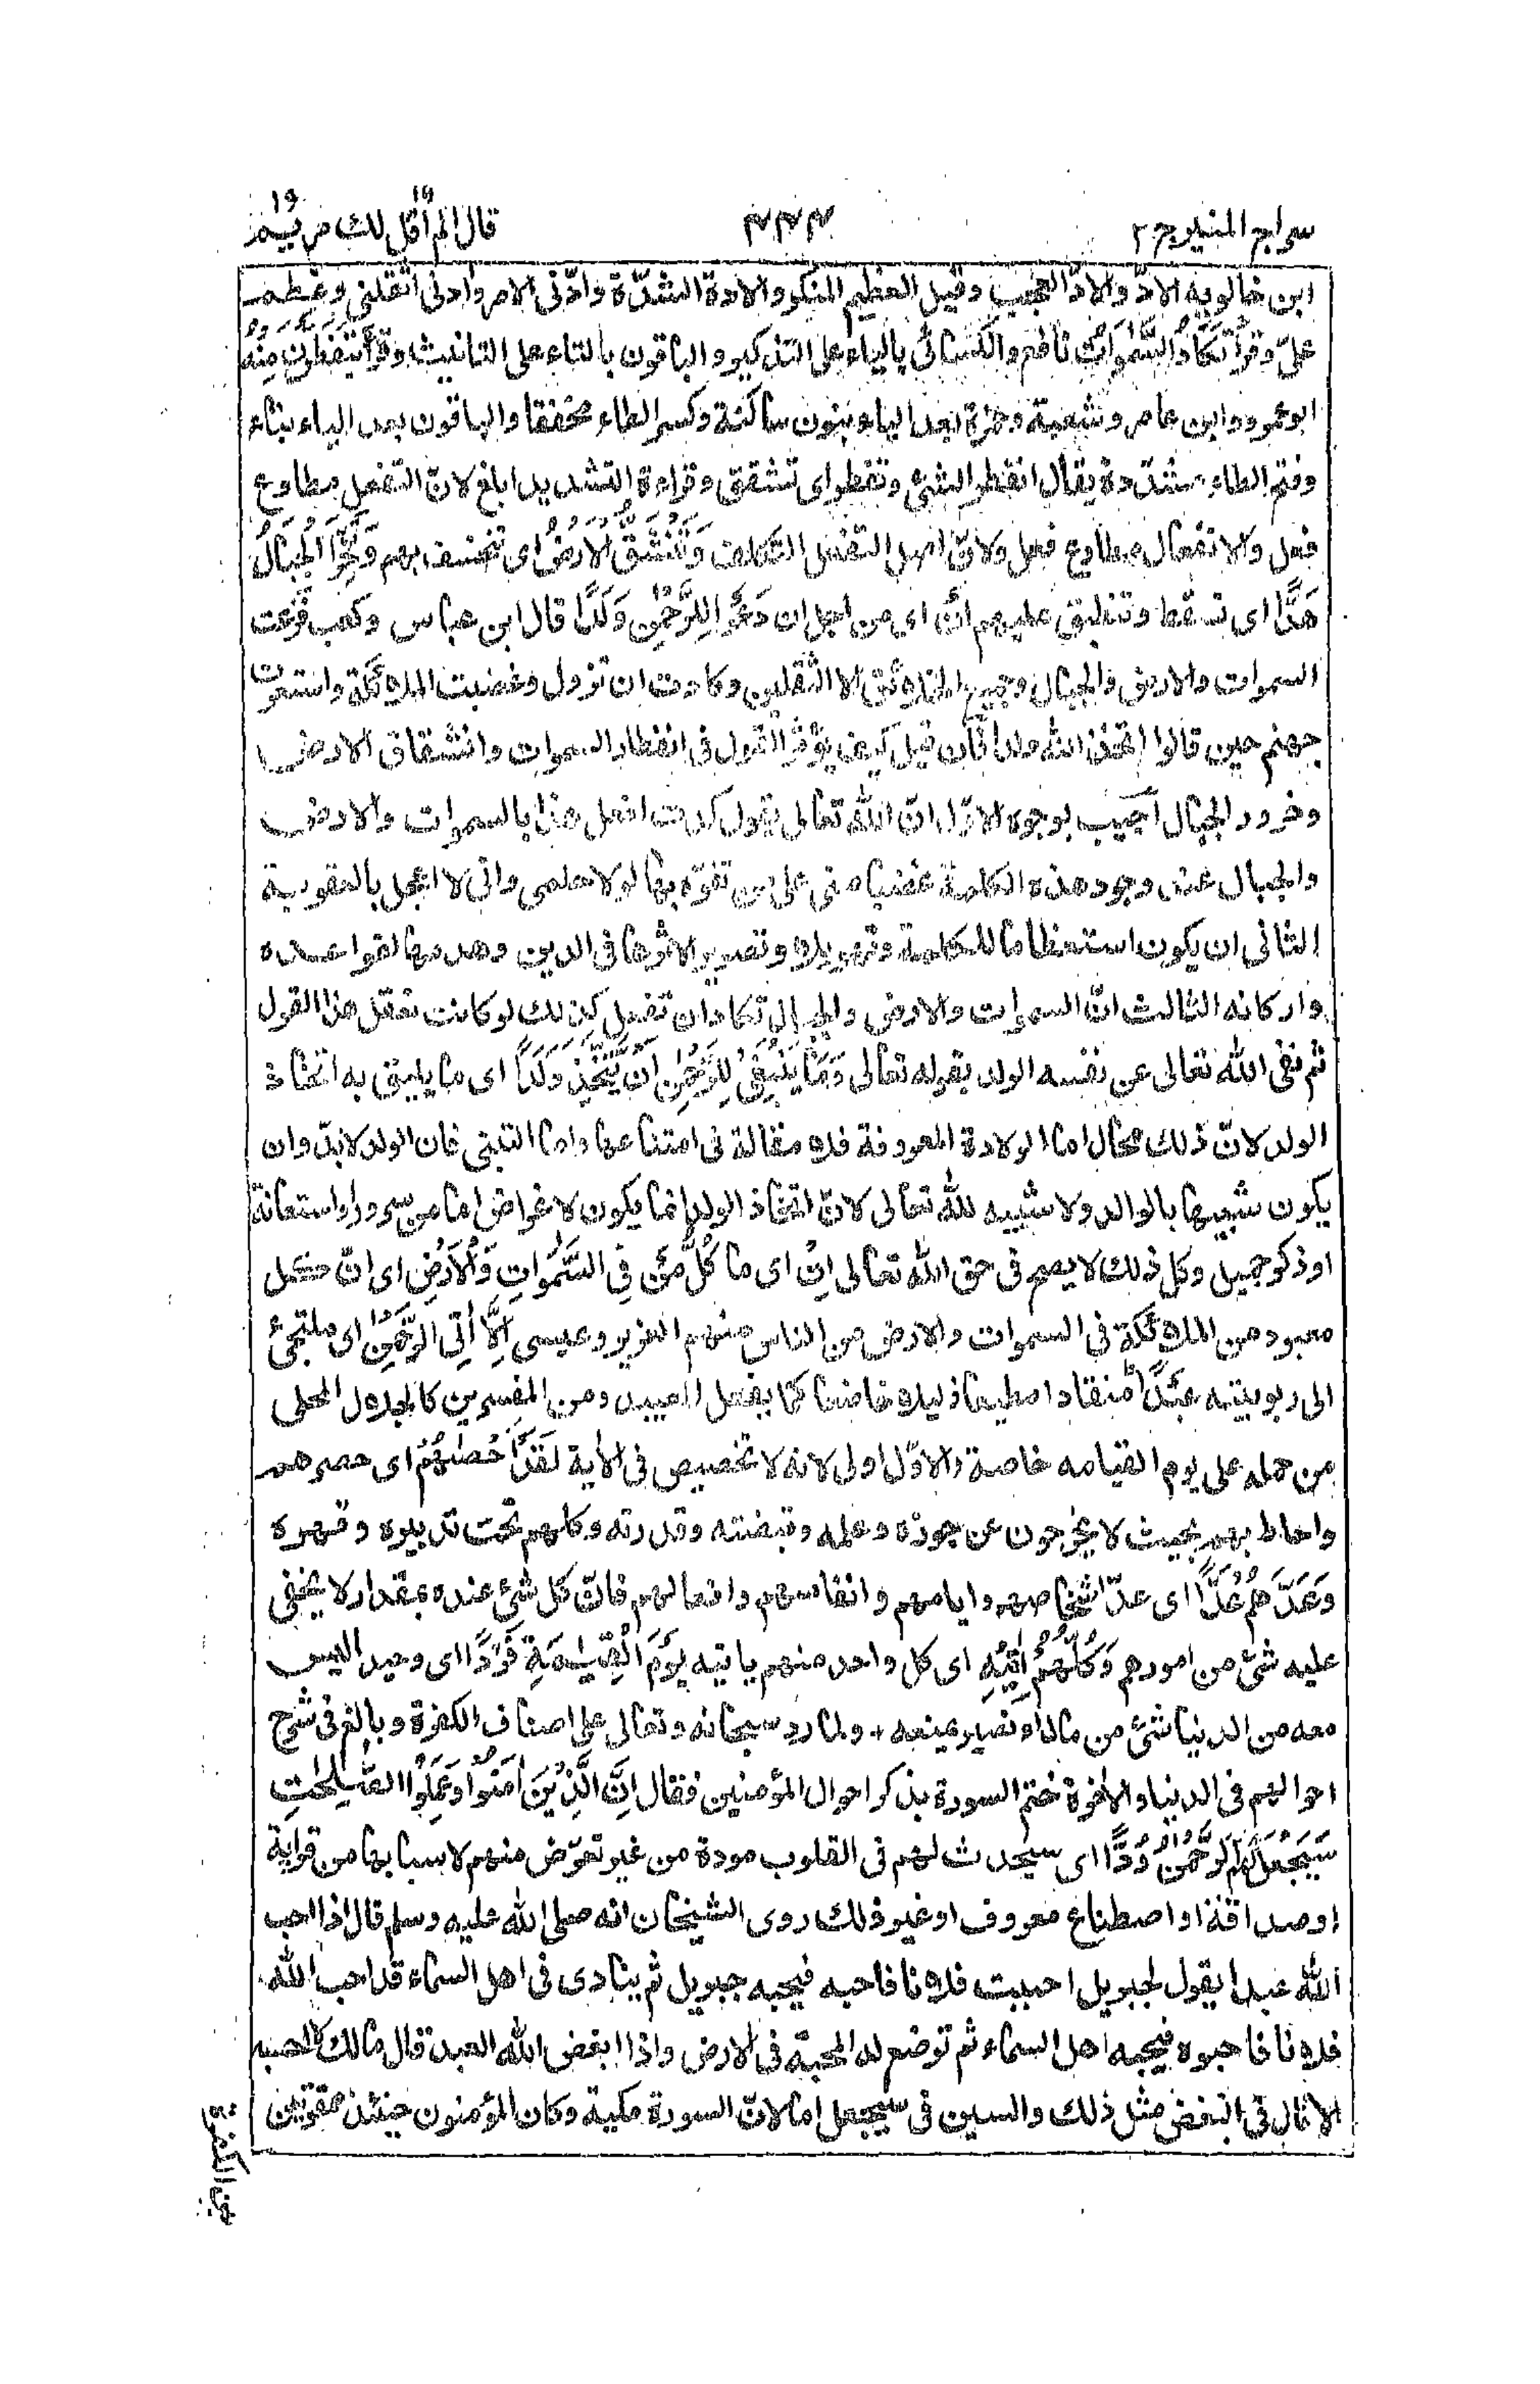 سراج المنير ج ٢
٤٤٤
قال الم اقل لك ١٦ مريم ١٩
ابن خالويه الادّ والادّ العجيب وقيل العظيم المنكر والادة الشدّة وادّنى الامر وادنى اثقلنى وعظم
علىّ وقرأ تَكَادُ السَّمٰوَاتُ نافع والكسائى بالياء على التذكير والباقون بالتاء على التانيث وقرأ يَتَفَطَّرْنَ مِنْهُ
ابو عمرو وابن عامر وشعبة وحمزة بعد الياء بنون ساكنة وكسر الطاء مخففا والباقون بعد الياء بتاء
وفتح الطاء مشدّدة يقال انفطر الشئ وتفطر اى تشقق وقراءة التشديد ابلغ لانّ التفعل مطاوع
فعل والانفعال مطاوع فعل ولانّ اصل التفعل التكلف وَتَنْشَقُّ الْاَرْضُ اى تخسف بهم وَتَخِرُّ الْجِبَالُ
هَدًّا اى تسقط وتنطبق عليهم اَنْ اى من اجل ان دَعَوْا لِلرَّحْمٰنِ وَلَدًا قال ابن عباس وكعب فزعت
السموات والارض والجبال وجميع الخلائق الا الثقلين وكادت ان تزول وغضبت الملائكة واستعرت
جهنم حين قالوا اتخذ الله ولدا فان قيل كيف يؤثر القول فى انفطار السموات وانشقاق الارض
وخرور الجبال اجيب بوجوه الاوّل انّ الله تعالى يقول كدت افعل هذا بالسموات والارض
والجبال عند وجود هذه الكلمة غضبا منى على من تفوّه بها لولا حلمى وانى لا اعجل بالعقوبة
الثانى ان يكون استعظاما للكلمة وتهويلا وتصوير الاثرها فى الدين وهدمها لقواعده
واركانه الثالث انّ السموات والارض والجبال تكاد ان تفعل كذلك لو كانت تعقل هذا القول
ثم نفى الله تعالى عن نفسه الولد بقوله تعالى وَمَا يَنْبَغِىْ لِلرَّحْمٰنِ اَنْ يَتَّخِذَ وَلَدًا اى ما يليق به اتخاذ
الولد لانّ ذلك محال اما الولادة المعروفة فلا مقالة فى امتناعها واما التبنى فان الولد لابدّ وان
يكون شبيها بالوالد ولا شبيه لله تعالى لانّ اتخاذ الولد انما يكون لاغراض اما من سرور او استعانة
او ذكر جميل وكل ذلك لا يصح فى حق الله تعالى اِنْ اى ما كُلُّ مَنْ فِى السَّمٰوَاتِ وَالْاَرْضِ اى انّ كل
معبود من الملائكة فى السموات والارض من الناس منهم العزير وعيسى اِلَّا اٰتِى الرَّحْمٰنِ اى ملتجئ
الى ربوبيته عَبْدًا منقادا مطيعا ذليلا خاضعا كما يفعل العبيد ومن المفسرين كالجلال المحلى
من حمله على يوم القيامه خاصة والاوّل اولى لانه لا تخصيص فى الاٰية لَقَدْ اَحْصٰهُمْ اى حصرهم
واحاط بهم بحيث لا يخرجون عن حوزه وعلمه وقبضته وقدرته وكلهم تحت تدبيره وقهره
وَعَدَّهُمْ عَدًّا اى عدّ اشخاصهم وايامهم وانفاسهم وافعالهم فانّ كل شئ عنده بمقدار لا يخفى
عليه شئ من امورهم وَكُلُّهُمْ اٰتِيْهِ اى كل واحد منهم ياتيه يَوْمَ الْقِيٰمَةِ فَرْدًا اى وحيد اليس
معه من الدنيا شئ من مال او نصير يمنعه ٭ ولما رد سبحانه وتعالى على اصناف الكفرة وبالغ فى شرح
احوالهم فى الدنيا والاٰخرة ختم السورة بذكر احوال المؤمنين فقال اِنَّ الَّذِيْنَ اٰمَنُوْا وَعَمِلُوا الصّٰلِحٰتِ
سَيَجْعَلُ لَهُمُ الرَّحْمٰنُ وُدًّا اى سيحدث لهم فى القلوب مودة من غير تعرّض منهم لاسبابها من قرابة
او صداقة او اصطناع معروف او غير ذلك روى الشيخان انه صلى الله عليه وسلم قال اذا احب
الله عبدا يقول لجبريل احببت فلانا فاحبه فيحبه جبريل ثم ينادى فى اهل السماء قد احب الله
فلانا فاحبوه فيحبه اهل السماء ثم توضع له المحبة فى الارض واذا ابغض الله العبد قال مالك لا احسبه
الا قال فى البغض مثل ذلك والسين فى سيجعل اما لانّ السورة مكية وكان المؤمنون حينئذ ممقوتين